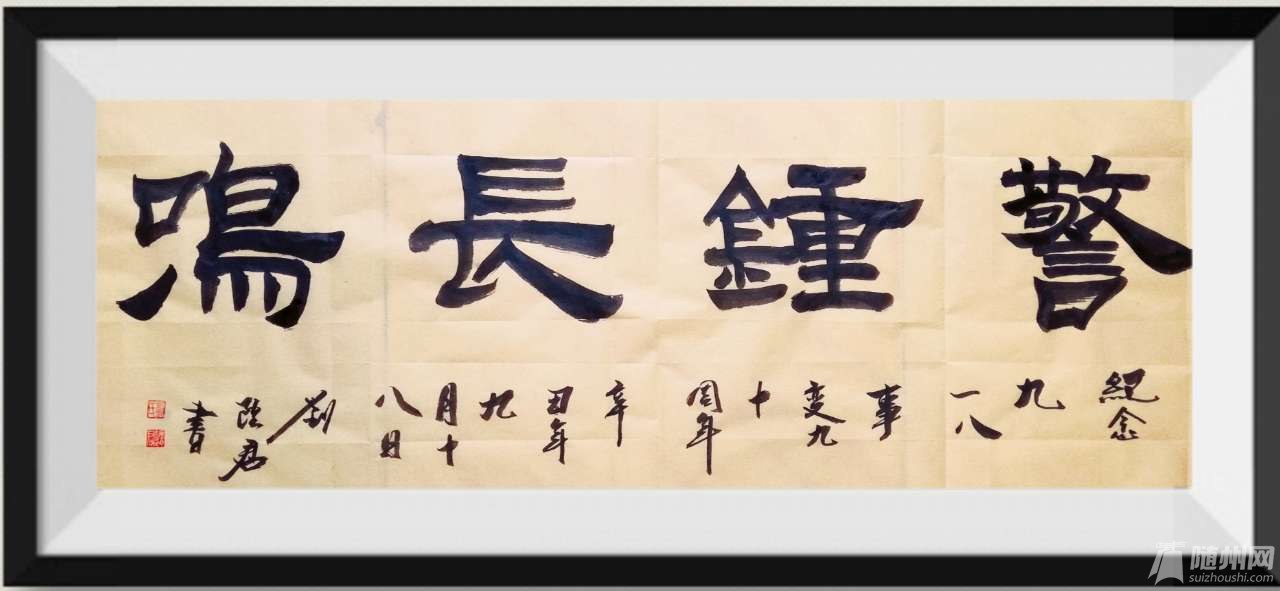 警鍾長鳴
紀念九一八事变九十周年辛丑年九月十八日劉君書
随州网
suizhoushi.com